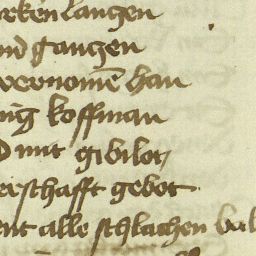 rken langen
nd gangen
vernomē han
nig koffman
d mit gibilot
erschafft gebot
ent alle schlachen bal